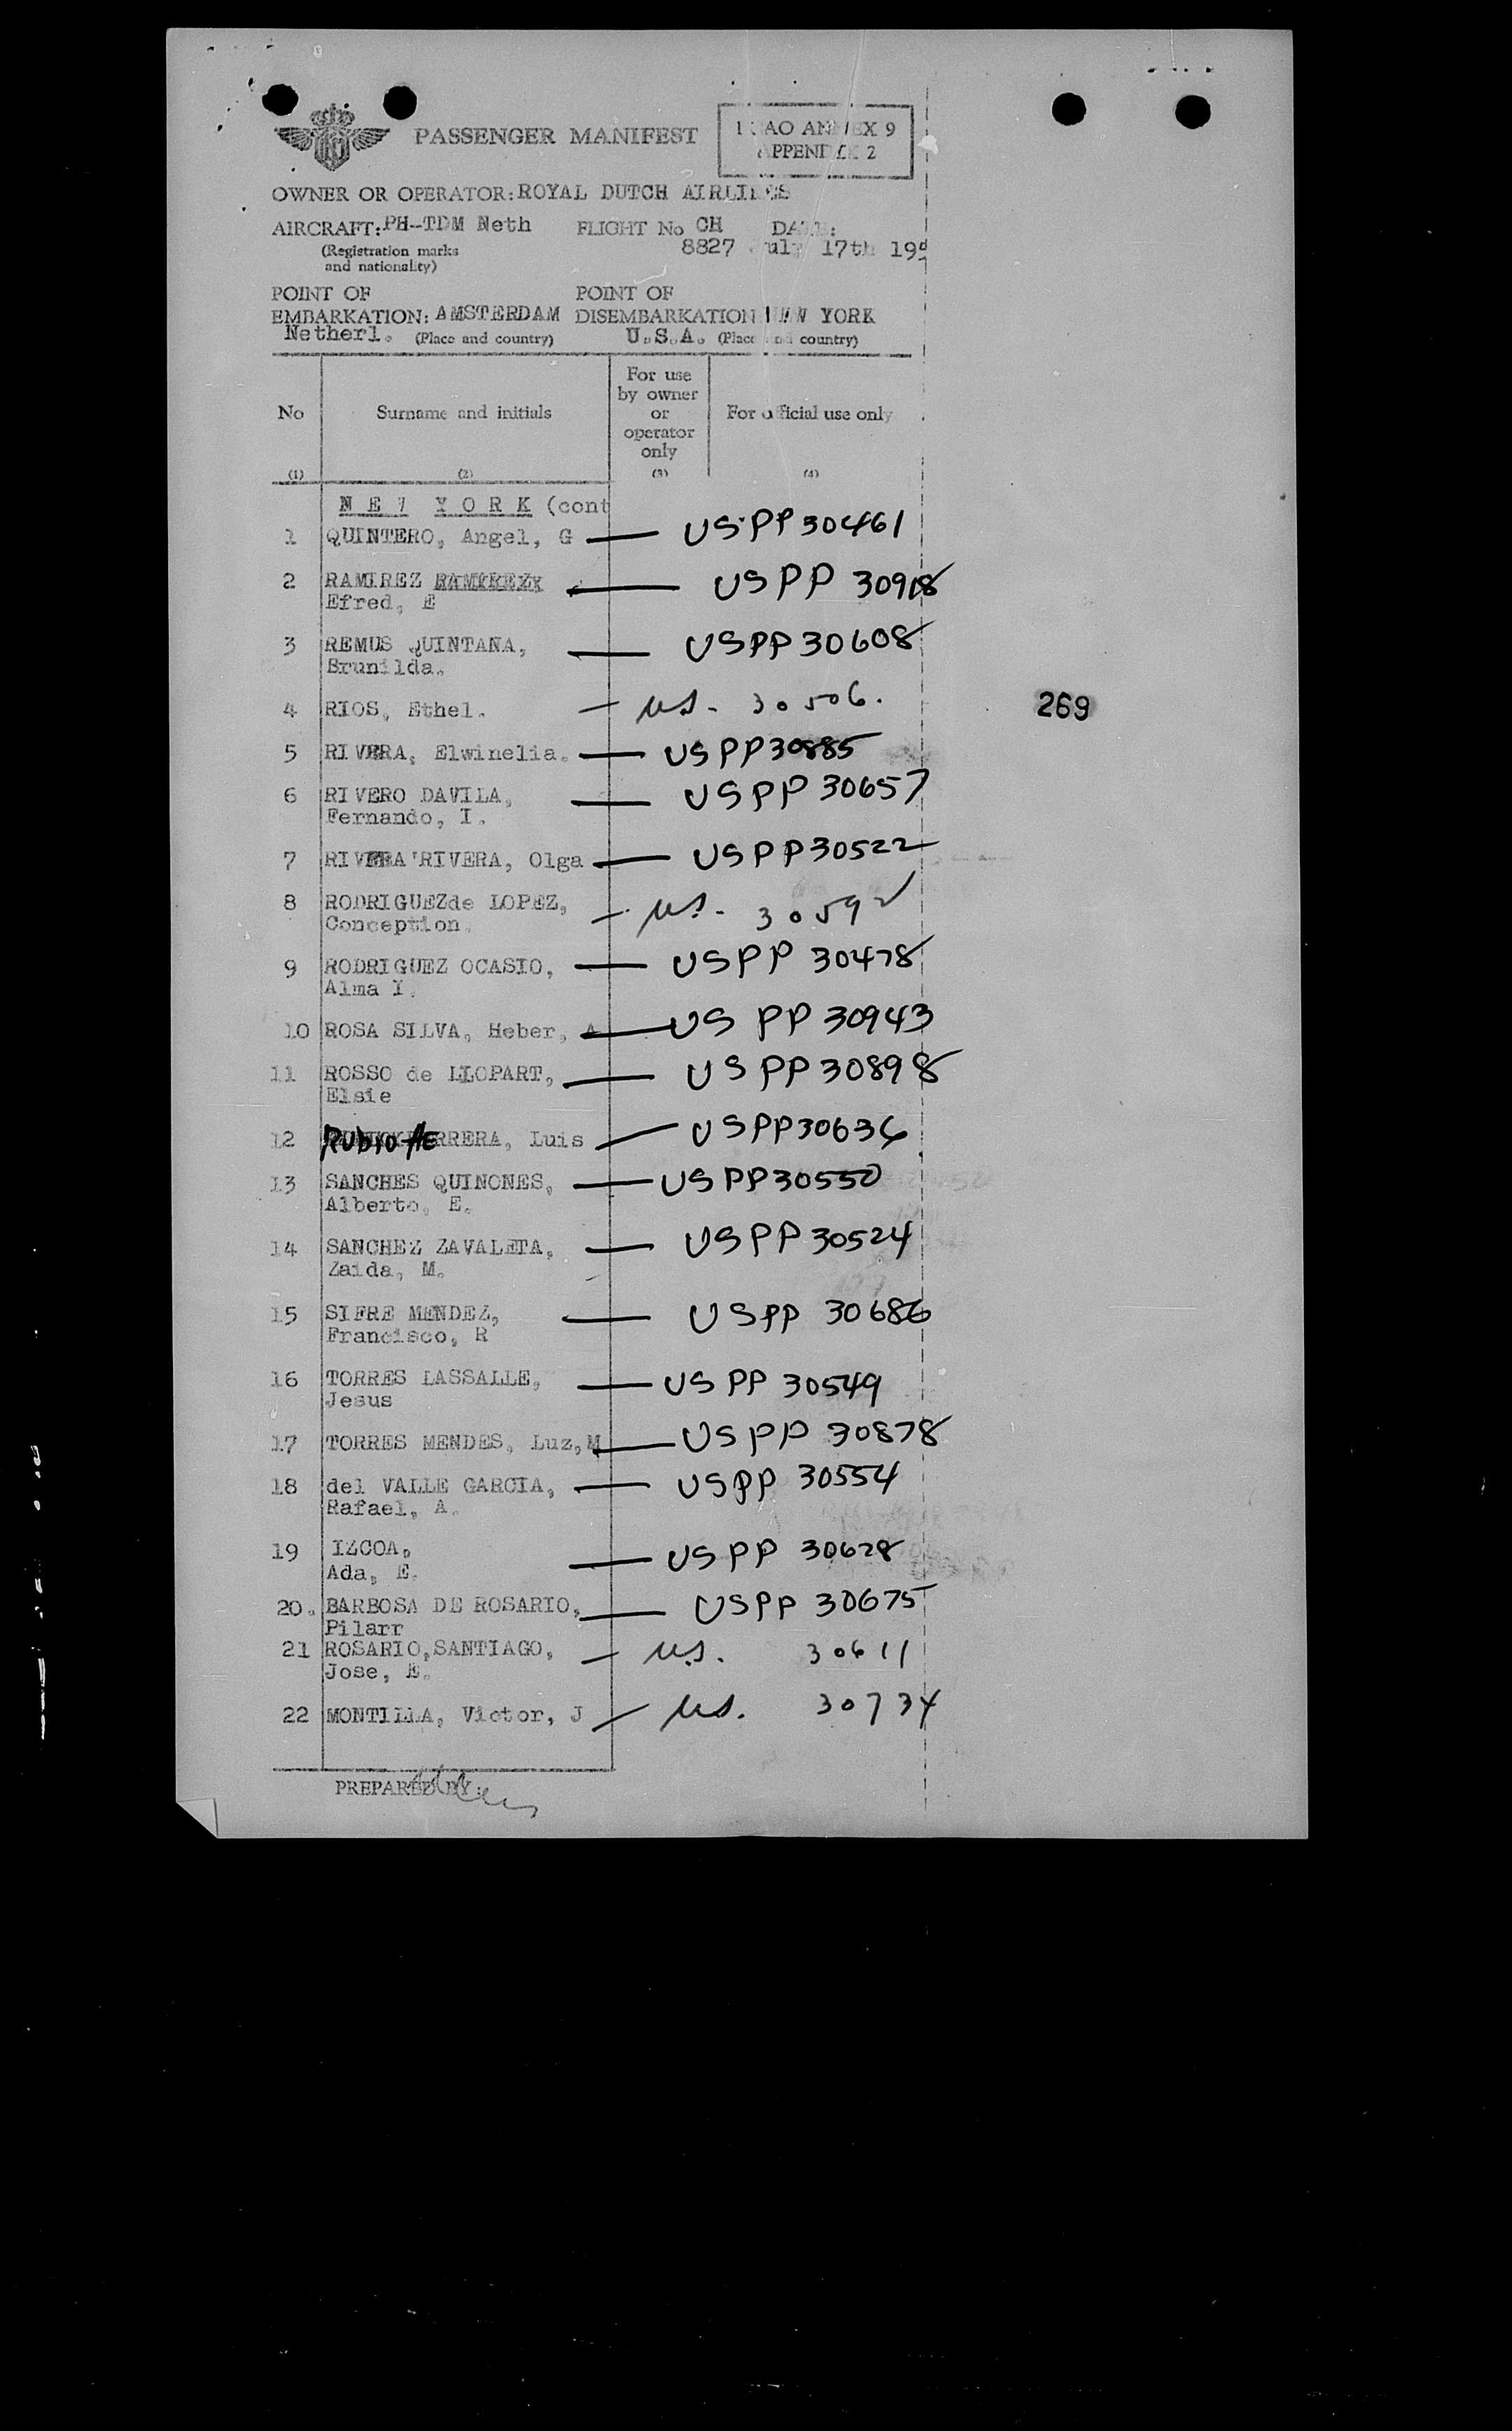 PASSENGER MANIFEST
ICAO ANNEX 9
APPENDIX 2
OWNER OR OPERATOR: ROYAL DUTCH AIRLINES
AIRCRAFT: PH-TDM Neth FLIGHT No CH DATE:
(Registration marks 8827 July 17th 195
and nationality)
POINT OF POINT OF
EMBARKATION: AMSTERDAM DISEMBARKATION NEW YORK
Netherl. (Place and country) U.S.A. (Place and country)
No Surname and initials For use by owner or operator only For official use only
(1) (2) (3) (4)
NEW YORK (cont
1 QUINTERO, Angel, G — USPP 30461
2 RAMIREZ RAMIREZ — USPP 30918
Efred, E
3 REMUS QUINTANA, — USPP 30608
Brunilda.
4 RIOS, Ethel. — US. 30506.
269
5 RIVERA, Elwinelia. — USPP 30885
6 RIVERO DAVILA, — USPP 30657
Fernando, I.
7 RIVERA'RIVERA, Olga — USPP 30522
8 RODRIGUEZde LOPEZ, — US. 30592
Conception.
9 RODRIGUEZ OCASIO, — USPP 30478
Alma I.
10 ROSA SILVA, Heber, A — US PP 30943
11 ROSSO de LLOPART, — USPP 30898
Elsie
12 RUBIO HERRERA, Luis — USPP 30636
13 SANCHES QUINONES, — USPP 30550
Alberto, E.
14 SANCHEZ ZAVALETA, — USPP 30524
Zaida, M.
15 SIFRE MENDEZ, — USPP 30686
Francisco, R
16 TORRES LASSALLE, — USPP 30549
Jesus
17 TORRES MENDES, Luz, M — USPP 30878
18 del VALLE GARCIA, — USPP 30554
Rafael, A.
19 IZCOA, — USPP 30628
Ada, E.
20. BARBOSA DE ROSARIO, — USPP 30675
Pilarr
21 ROSARIO,SANTIAGO, — US. 30611
Jose, E.
22 MONTILLA, Victor, J — US. 30734
PREPARED BY: